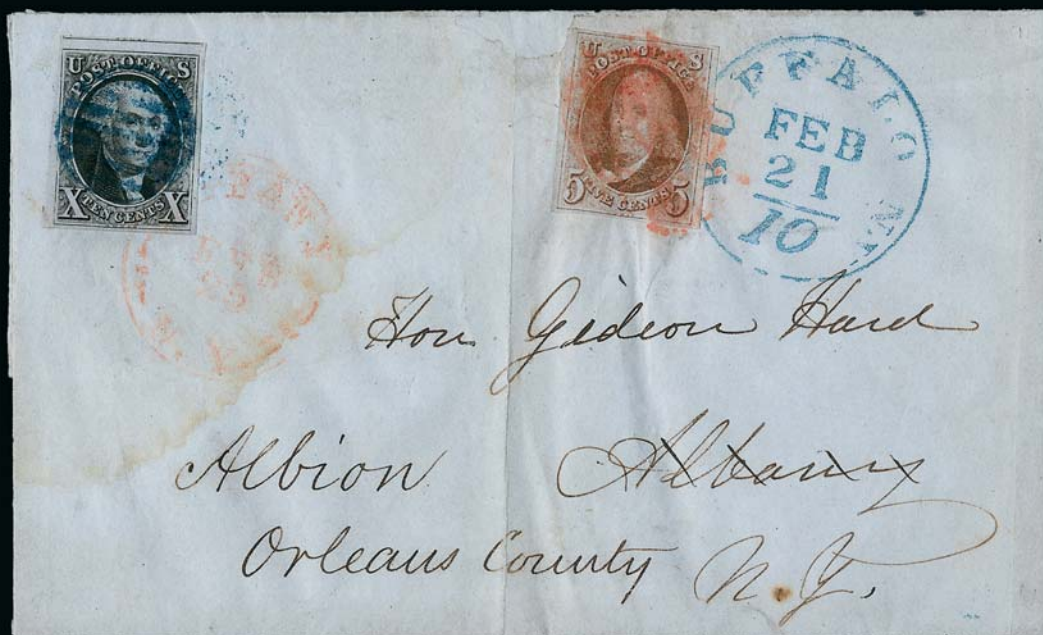 U S
POST OFFICE
X TEN CENTS X
U S
POST OFFICE
5 FIVE CENTS 5
BUFFALO N.Y.
FEB
21
10
Hon Gideon Hard
Albion Albany
Orleans County N.Y.